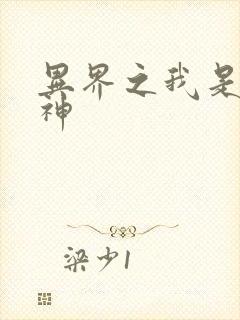 異界之我是
神
梁少1